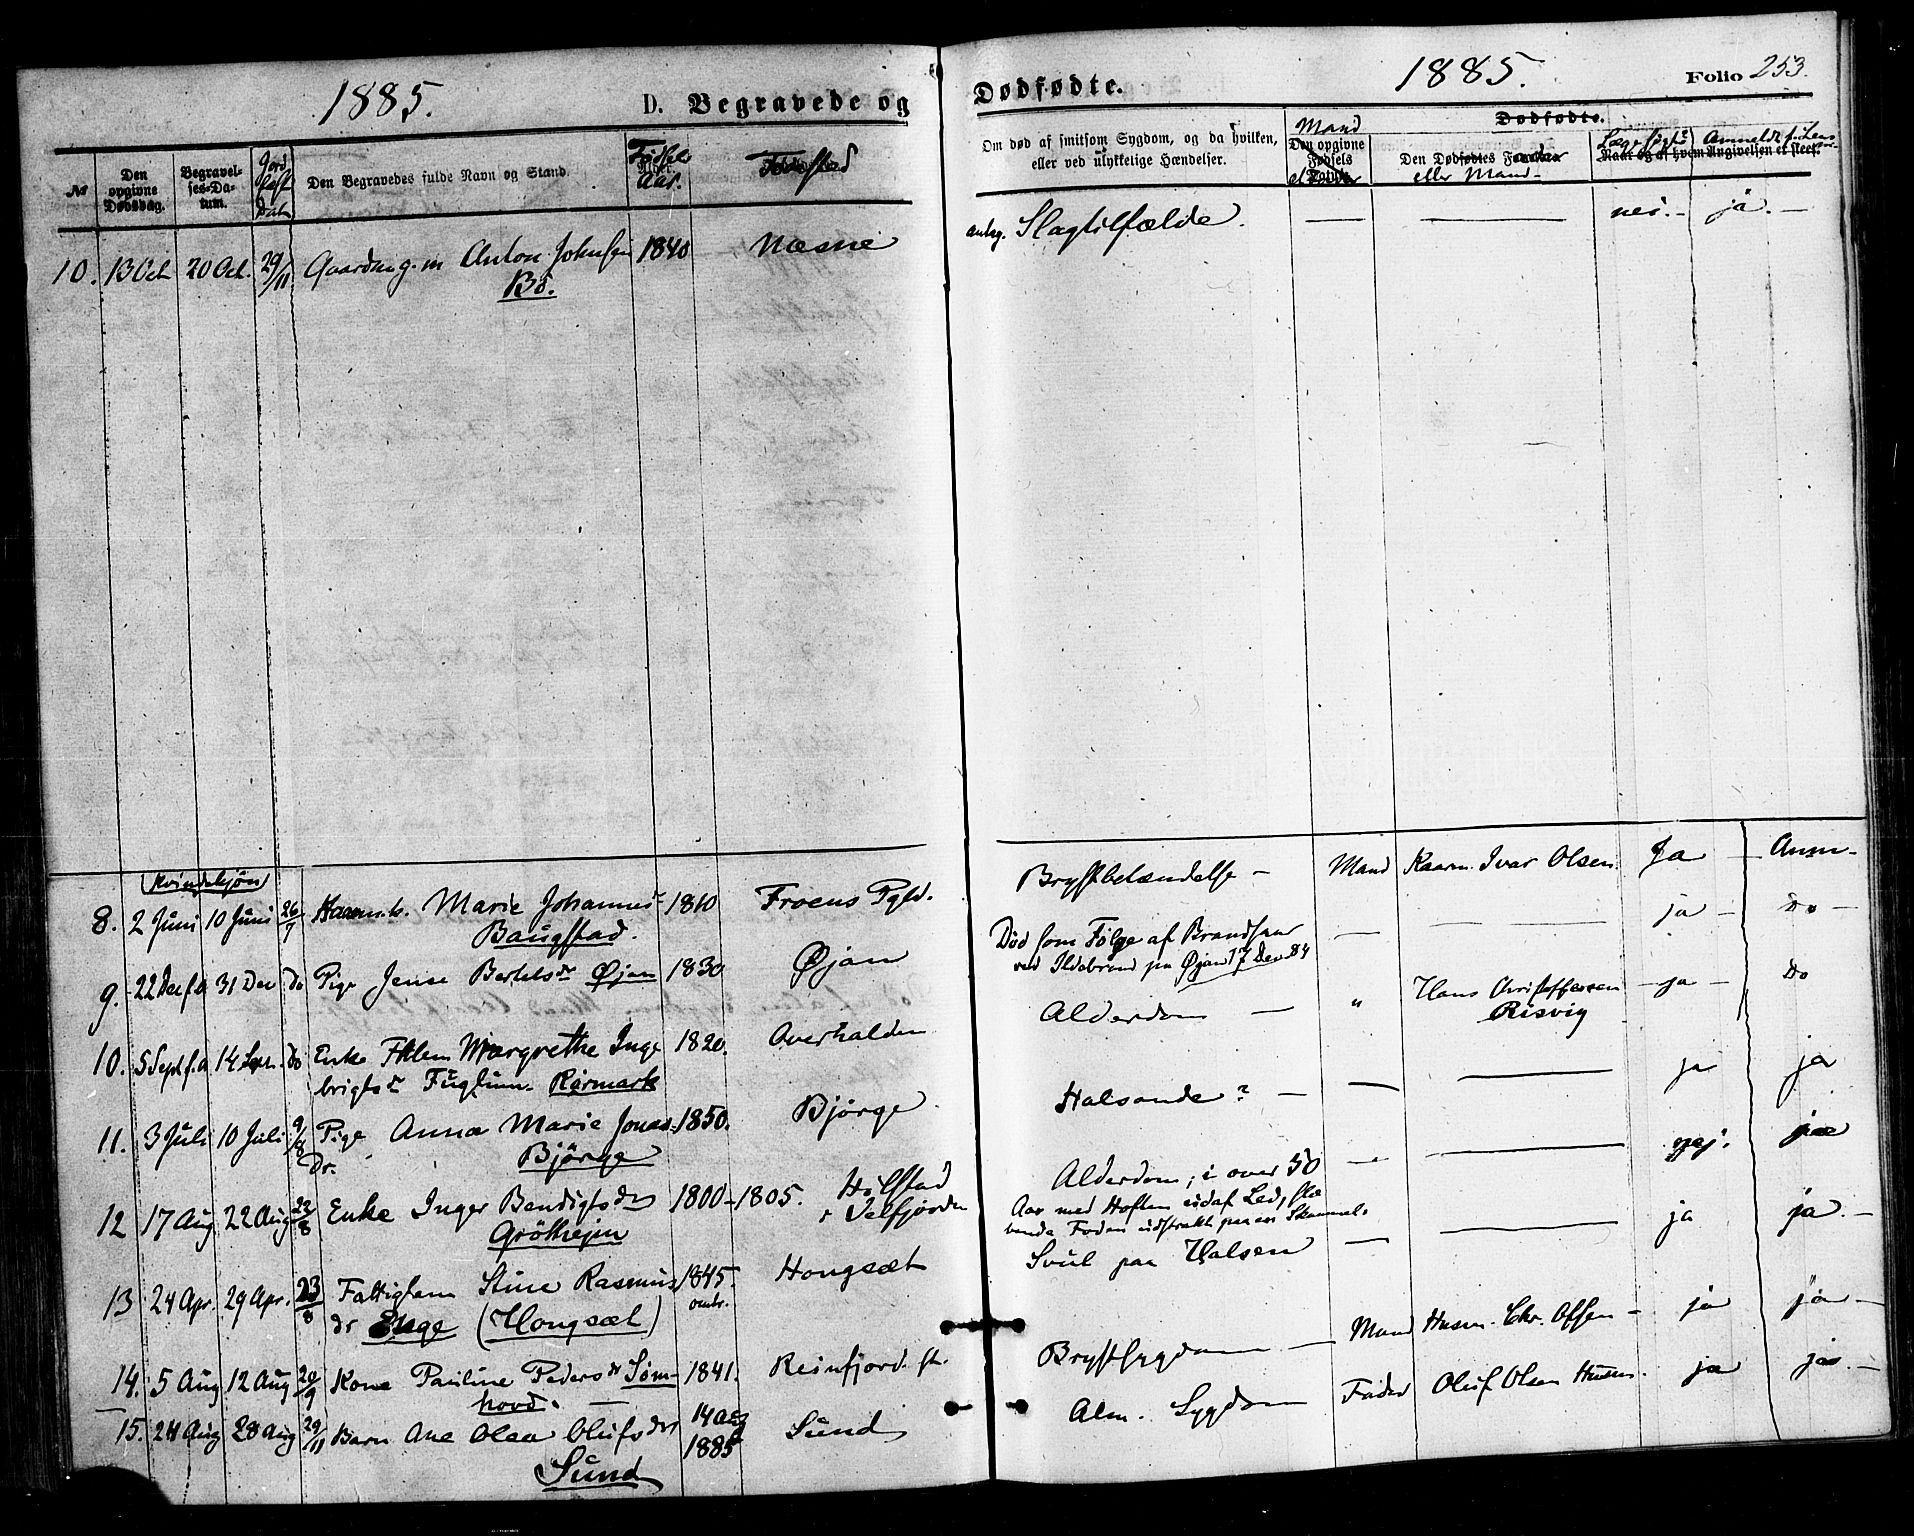 1885.
D. Begravede og
№
Den opgivne Dødsdag.
Begravelses-Datum.
Jordfæst Dat
Den Begravedes fulde Navn og Stand.
Fødsels Aar.
Fødested
10. 13 Oct 20 Oct. 29/11 Gaardmg. m Anton Johnsen 1840 Næsne
Bö.
Kvindekjøn
8. 2 Juni 10 Juni 26/7 Marie Johannes 1810 Froens Pgld.
Baugstad.
9. 22 Dec f.a 31 Dec Do Pige Jense Bertels dr Øjan 1830 Øjan
10. 5 Sept f.a 14 Sept. Do Enke Margrethe Inge 1820. Overhalden
brigts dr Rörmark
11. 3 Juli 10 Juli 9/8 Pige Anna Marie Jonas 1850. Bjørge
Dr. Bjørge
12 17 Aug 22 Aug 23/8 Enke Inger Bendigts dr 1800-1805. Hölstad
i Velfjorden
Gröthejm
13 24 Apr. 29 Apr. 23/8 Fattiglem Stine Rasmus 1845. Hongsæt
omtr.
dr Enge (Hongsæt)
14. 5 Aug 12 Aug 20/9 Kone Pauline Peders dr Søm- 1841. Reinfjord.
hovd.
15. 24 Aug 28 Aug 29/11 Barn Ane Olea Olufs dr 14 Aug 1885 Sund
Sund
Dødfødte.
1885.
Folio 253.
Om død af smitsom Sygdom, og da hvilken,
eller ved ulykkelige Hændelser.
Mand
Den opgivne Fødsels
Dødfødte.
Den Dødfødtes Forældre
eller Mand-
Lægesøgt?
Anmeldt f. Lens
Naar og af hvem Angivelsen er skeet.
antag. Slagtilfælde. — — nei. — ja. —
Brystbetændelse — Mand Kaarm. Ivar Olsen Ja — Anm—
Død som Følge af Brandsaar — — ja — Do —
ved Ildebrand paa Øjan 17 Dec 84
Alderdom — " Hans Christoffersen — ja — Do
Risvig
Halsonde? — — — ja ja
Alderdom, i over 50 — — nej. ja
Aar med Hoften udaf Led,
Foden udstrakt paa en Skammel.
Svul paa Halsen — — ja ja. —
Brystsygdom — Mand Husm. Chr. Olsen — ja ja —
Alm. Sygdom Fader Oluf Olsen Husm. ja ja. —